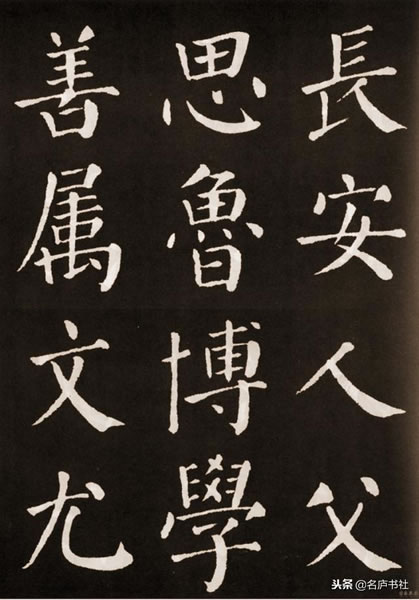 長安人父
思魯博學
善属文尤
头条@名庐书社